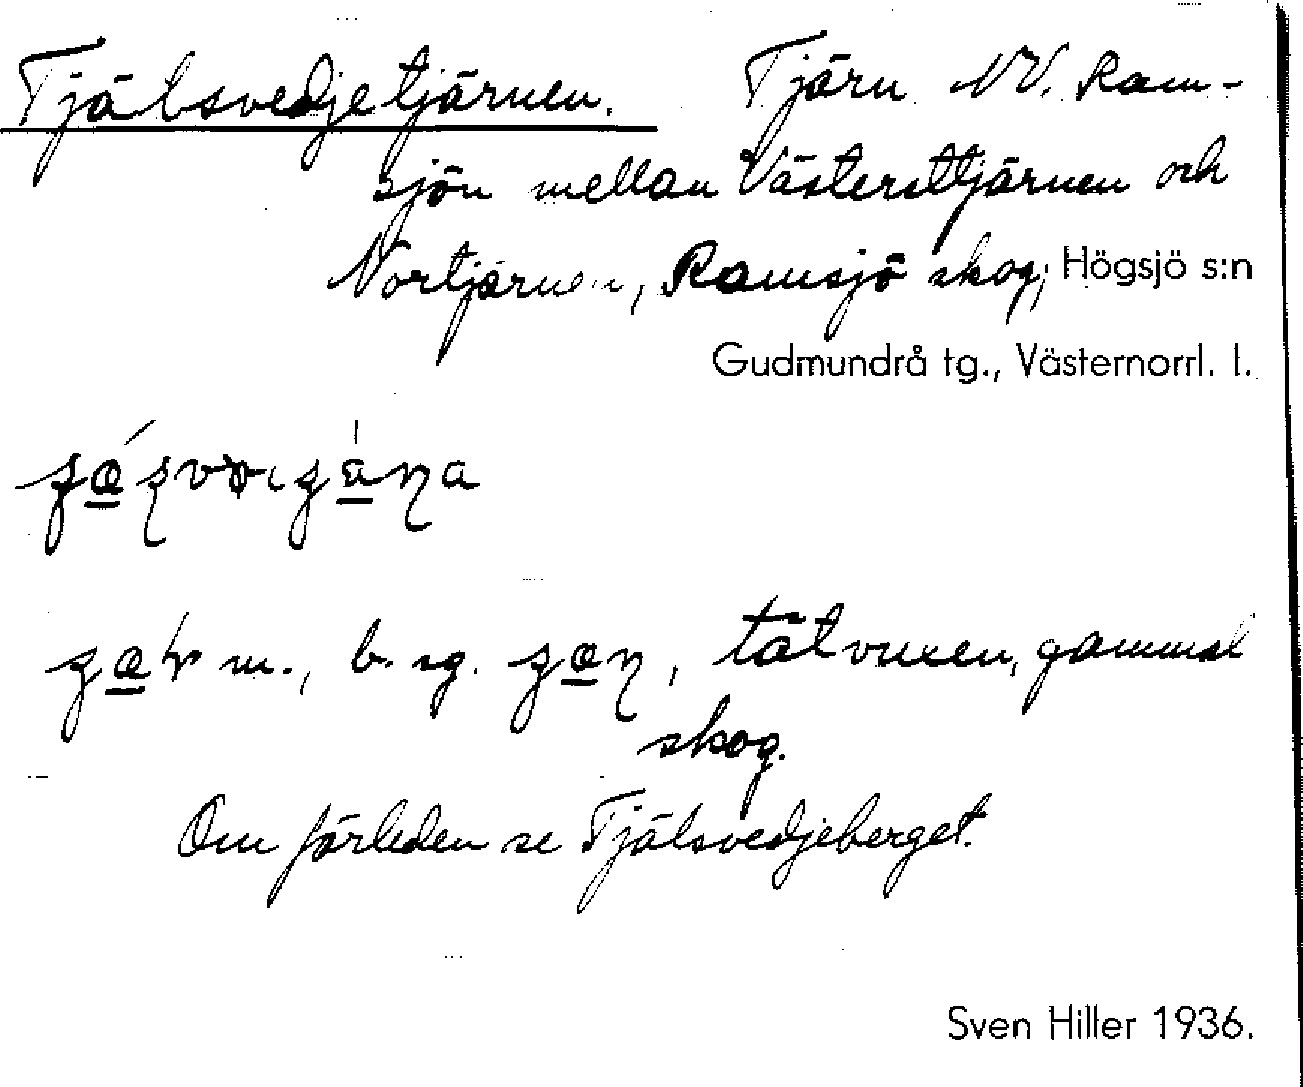 Tjälsvedjetjärnen. Tjärn NV. Ram-
sjön mellan Västersttjärnen och
Nortjärnen, Ramsjö skog, Högsjö s:n
Gudmundrå tg., Västernorrl. l.
m., b. sg. , tätvuxen, gammal
skog.
Om förleden se Tjälsvedjeberget.
Sven Hiller 1936.